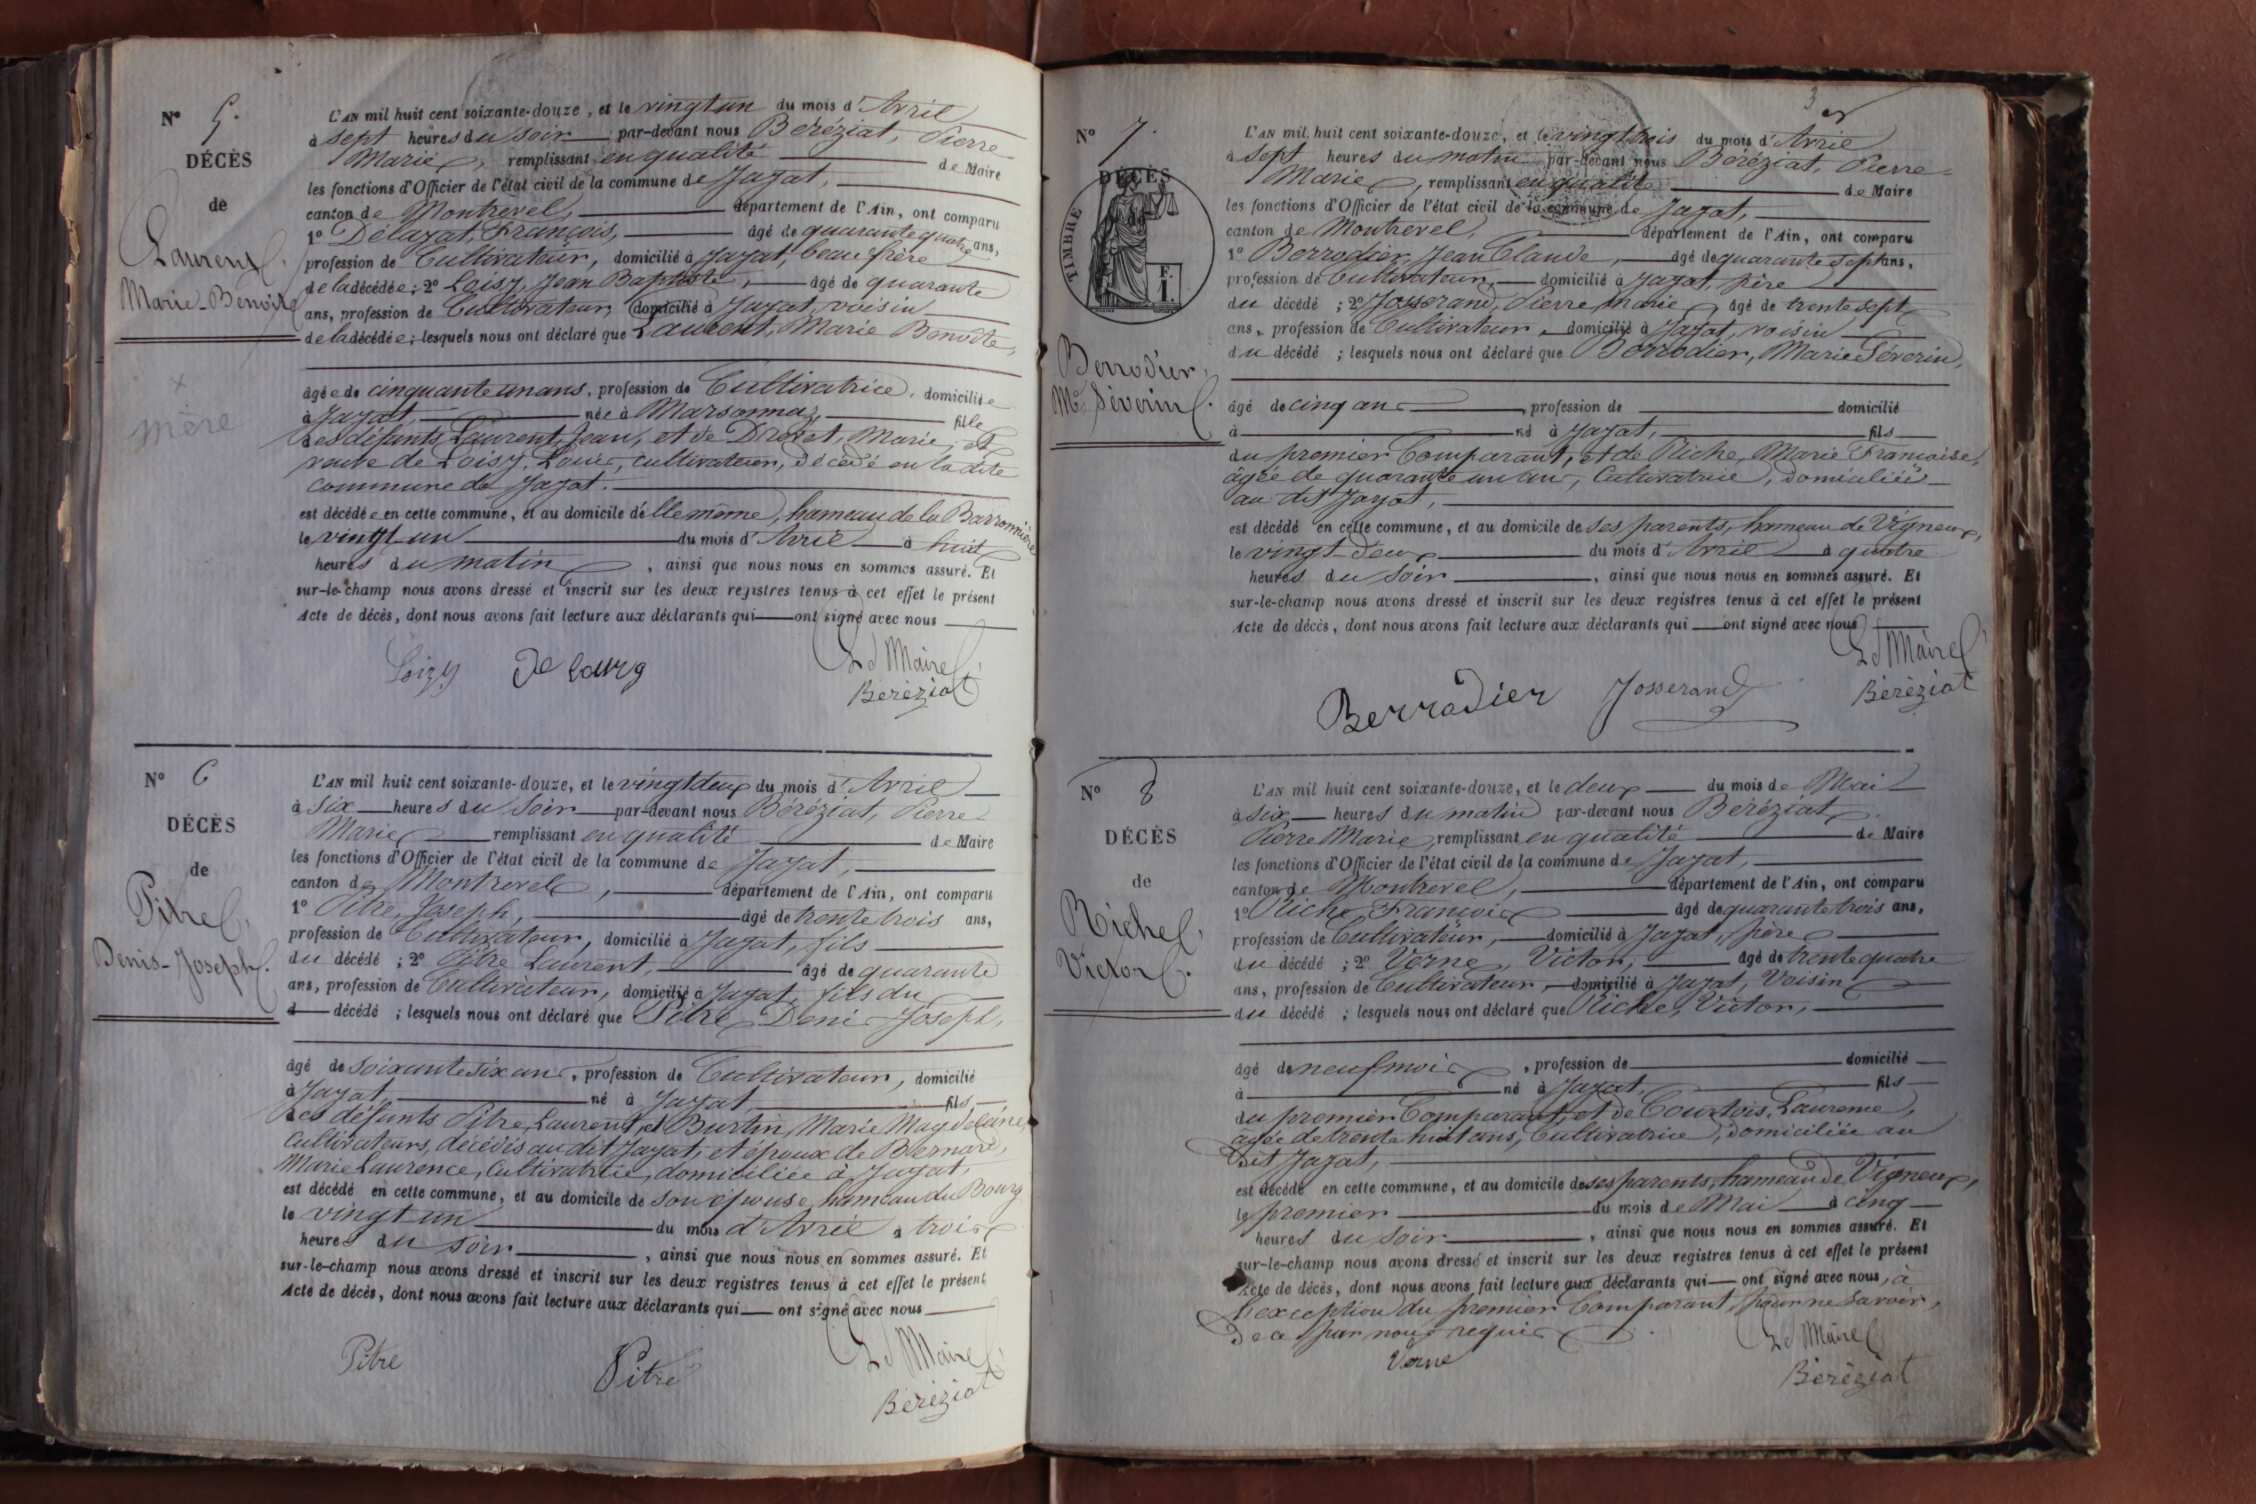 N° 5.
DÉCÈS
de
Laurent,
Marie-Benoîte
mère
L'AN mil huit cent soixante-douze, et le vingt un du mois d'Avril
à sept heures du soir par-devant nous Béréziat, Pierre
Marie, remplissant en qualité de Maire
les fonctions d'Officier de l'état civil de la commune de Jayat,
canton de Montrevel, département de l'Ain, ont comparu
1° Délayat, François, âgé de quarante quatre ans,
profession de Cultivateur, domicilié à Jayat, beau frère
de la décédée; 2° Loisy, Jean Baptiste, âgé de quarante
ans, profession de Cultivateur, domicilié à Jayat, voisin
de la décédée; lesquels nous ont déclaré que Laurent, Marie Benoîte,
âgée de cinquante un ans, profession de Cultivatrice, domiciliée
à Jayat, née à Marsonnaz fille
des défunts Laurent, Jean, et de Drevet, Marie, et
veuve de Loisy, Louis, cultivateur, décédé en la dite
commune de Jayat.
est décédée en cette commune, et au domicile d'elle même, hameau de la Barronnière
le vingt un du mois d'Avril à huit
heures du matin, ainsi que nous nous en sommes assuré. Et
sur-le-champ nous avons dressé et inscrit sur les deux registres tenus à cet effet le présent
Acte de décès, dont nous avons fait lecture aux déclarants qui ont signé avec nous
Loizy
Le Maire
Béréziat
N° 6
DÉCÈS
de
Pitre,
Denis-Joseph.
L'AN mil huit cent soixante-douze, et le vingt deux du mois d'Avril
à six heures du soir par-devant nous Béréziat, Pierre
Marie remplissant en qualité de Maire
les fonctions d'Officier de l'état civil de la commune de Jayat,
canton de Montrevel, département de l'Ain, ont comparu
1° Pitre, Joseph, âgé de trente trois ans,
profession de Cultivateur, domicilié à Jayat, fils
du décédé; 2° Pitre Laurent, âgé de quarante
ans, profession de Cultivateur, domicilié à Jayat, fils du
d décédé; lesquels nous ont déclaré que Pitre Denis Joseph,
âgé de soixante six ans, profession de Cultivateur, domicilié
à Jayat, né à Jayat fils
des défunts Pitre, Laurent, et Burtin, Marie Magdeleine,
cultivateurs, décédés au dit Jayat, et époux de Bernard,
Marie Laurence, Cultivatrice, domiciliée à Jayat,
est décédé en cette commune, et au domicile de son épouse, hameau du Bourg
le vingt un du mois d'Avril à trois
heures du soir, ainsi que nous nous en sommes assuré. Et
sur-le-champ nous avons dressé et inscrit sur les deux registres tenus à cet effet le présent
Acte de décès, dont nous avons fait lecture aux déclarants qui ont signé avec nous
Pitre Pitre
Le Maire
Béréziat
3
N° 7.
DÉCÈS
TIMBRE
F. I.
Berrodier,
Me Séverin.
L'AN mil huit cent soixante-douze, et le vingt trois du mois d'Avril
à sept heures du matin par-devant nous Béréziat, Pierre
Marie, remplissant en qualité de Maire
les fonctions d'Officier de l'état civil de la commune de Jayat,
canton de Montrevel, département de l'Ain, ont comparu
1° Berrodier, Jean Claude, âgé de quarante sept ans,
profession de Cultivateur, domicilié à Jayat, père
du décédé; 2° Josserand, Pierre Marie âgé de trente sept
ans, profession de Cultivateur, domicilié à Jayat, voisin
du décédé; lesquels nous ont déclaré que Berrodier, Marie Séverin,
âgé de cinq ans, profession de domicilié
à né à Jayat, fils
du premier Comparant, et de Riche, Marie Françoise,
âgée de quarante un ans, Cultivatrice, domiciliée
au dit Jayat,
est décédé en cette commune, et au domicile de ses parents, hameau de Vigneux,
le vingt deux du mois d'Avril à quatre
heures du soir, ainsi que nous nous en sommes assuré. Et
sur-le-champ nous avons dressé et inscrit sur les deux registres tenus à cet effet le présent
Acte de décès, dont nous avons fait lecture aux déclarants qui ont signé avec nous
Berrodier Josserand
Le Maire
Béréziat
N° 8
DÉCÈS
de
Riche,
Victor.
L'AN mil huit cent soixante-douze, et le deux du mois de Mai
à six heures du matin par-devant nous Béréziat,
Pierre Marie, remplissant en qualité de Maire
les fonctions d'Officier de l'état civil de la commune de Jayat,
canton de Montrevel, département de l'Ain, ont comparu
1° Riche, François âgé de quarante trois ans,
profession de Cultivateur, domicilié à Jayat, père
du décédé; 2° Verne, Victor, âgé de trente quatre
ans, profession de Cultivateur, domicilié à Jayat, Voisin
du décédé; lesquels nous ont déclaré que Riche, Victor,
âgé de neuf mois, profession de domicilié
à né à Jayat, fils
du premier Comparant, et de Courtois, Laurence,
âgée de trente huit ans, Cultivatrice, domiciliée au
dit Jayat,
est décédé en cette commune, et au domicile de ses parents, hameau de Vigneux,
le premier du mois de Mai à cinq
heures du soir, ainsi que nous nous en sommes assuré. Et
sur-le-champ nous avons dressé et inscrit sur les deux registres tenus à cet effet le présent
Acte de décès, dont nous avons fait lecture aux déclarants qui ont signé avec nous, à
l'exception du premier Comparant, pour ne savoir,
de ce par nous requis.
Verne
Le Maire
Béréziat